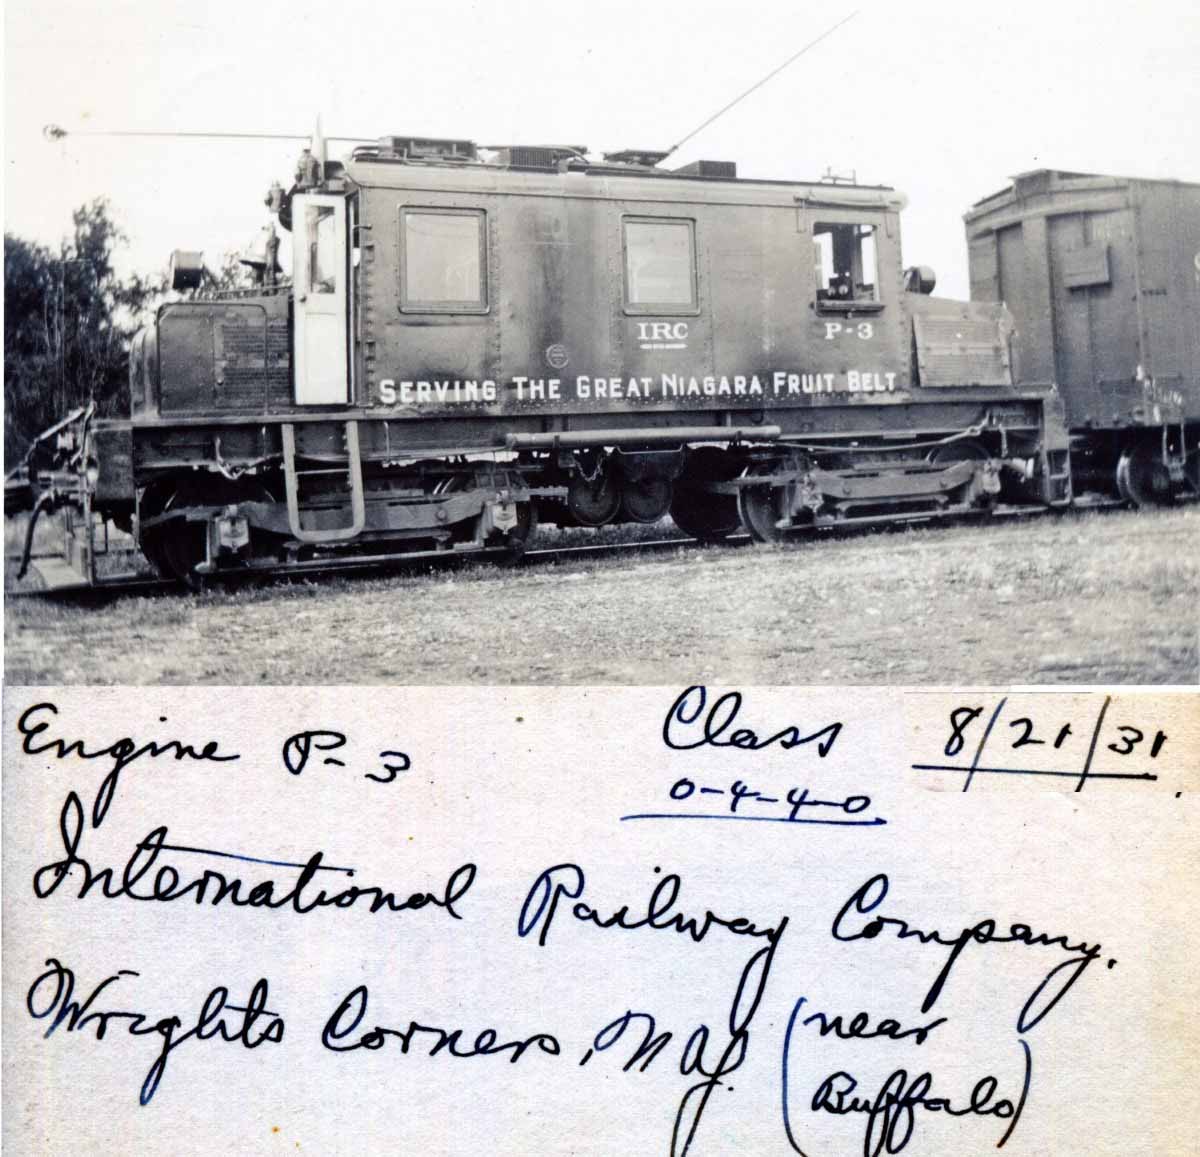 IRC
P-3
SERVING THE GREAT NIAGARA FRUIT BELT
Engine P-3
Class
8/21/31
0-4-4-0
International Railway Company.
Wrights Corners, N.Y. (near
Buffalo)